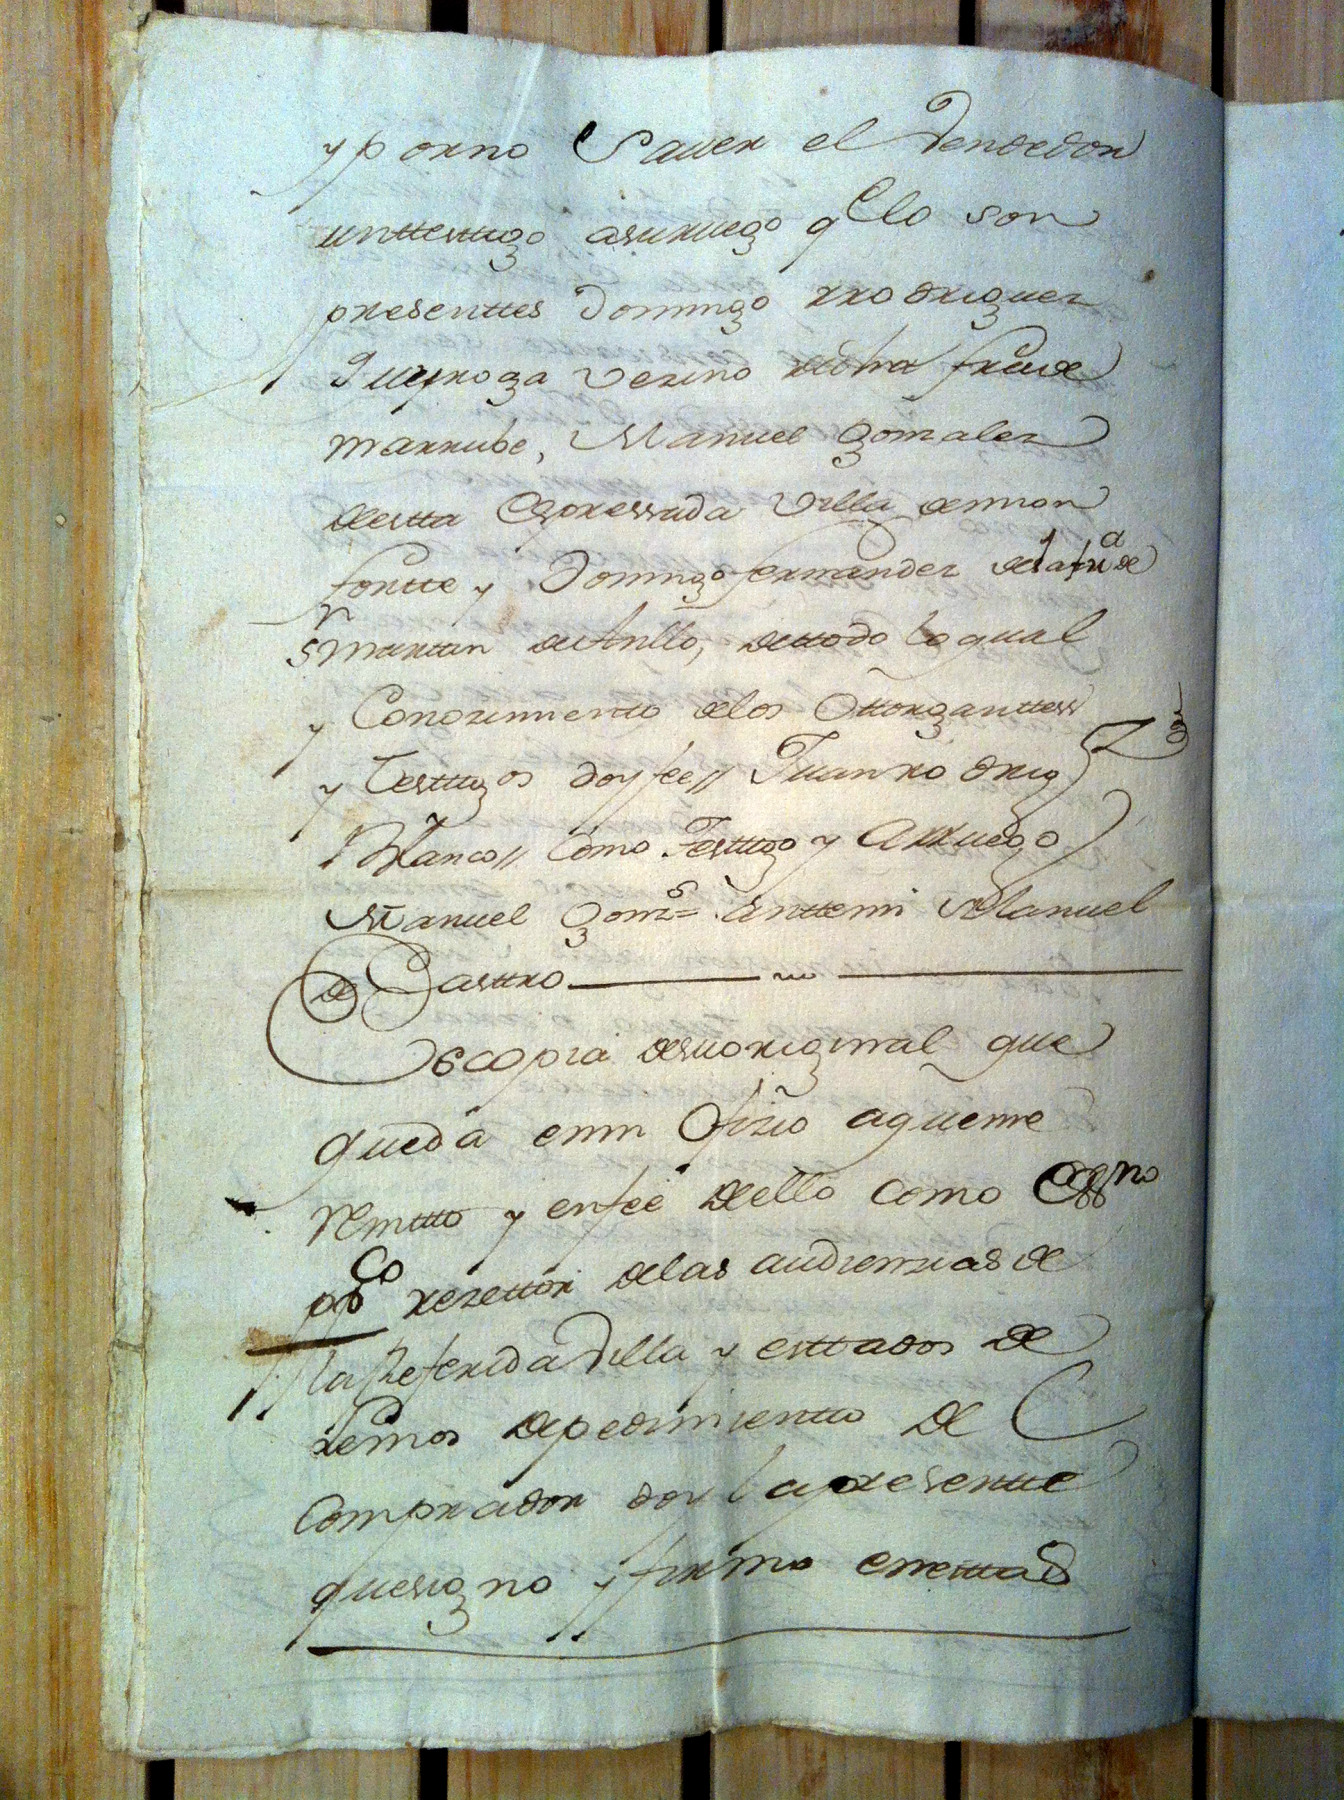 y por no Saver el Vendedor
un ttesttigo asu ruego q.e lo son
presenttes Domingo rrodriguez
Quiroga Vezino de dha frâ de
marrube, Manuel Gonzalez
destta Espressada Villa de mon
fortte y Domingo fernandez de la fr.a de
S.n marttin de Anllo, de ttodo lo qual
y Conozimientto de los Ottorganttes
y Testtigos doy fee // Juan rodrig.z
Blanco // Como Testtigo y A rruego
Manuel Gonz.s = Antte mi Manuel
de Casttro
Es copia de su original que
queda en mi Ofizio a que me
rremitto y en fee de ello como Ess.no
pb.co rezettor de las audienzias de
la Referida Villa y esttados de
Lemos de pedimientto de
Comprador doy la presentte
que signo y firmo en estta d